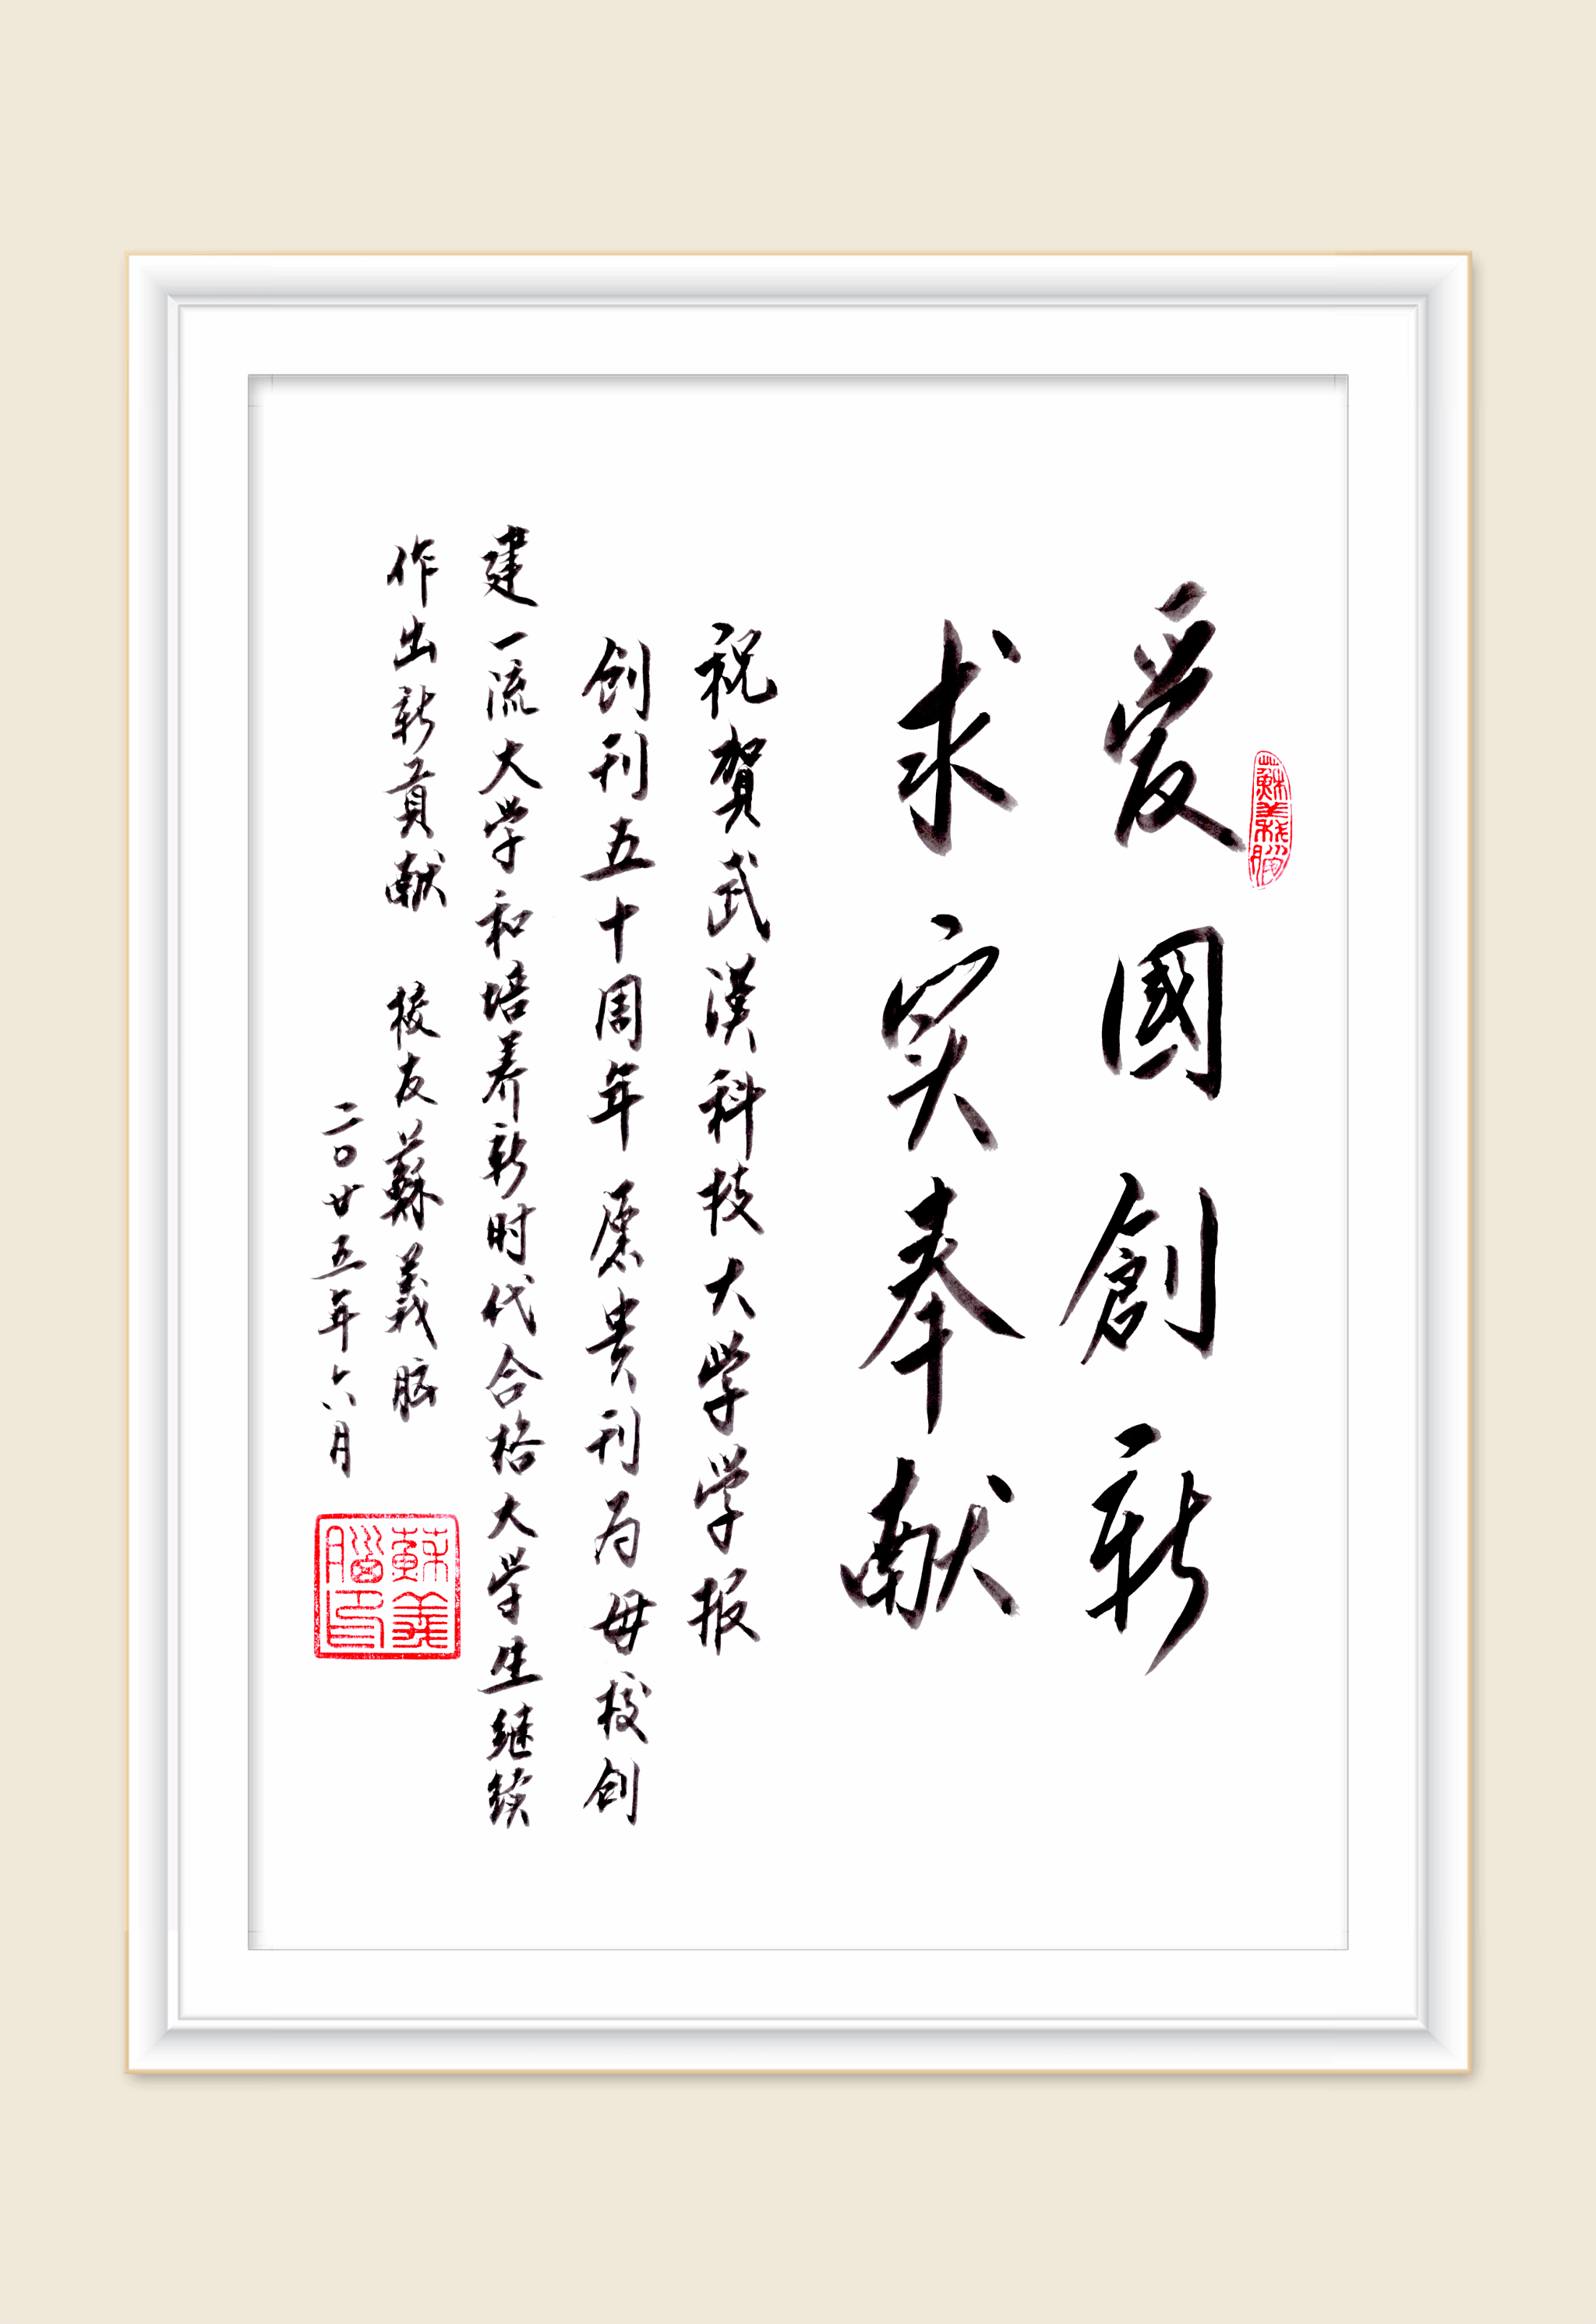 蘇義腦
爱國創新
求实奉献
祝賀武漢科技大学学报
創刊五十周年 愿贵刊为母校创
建一流大学和培养新时代合格大学生继续
作出新貢献 校友蘇義脑
二〇廿五年六月
蘇義腦印